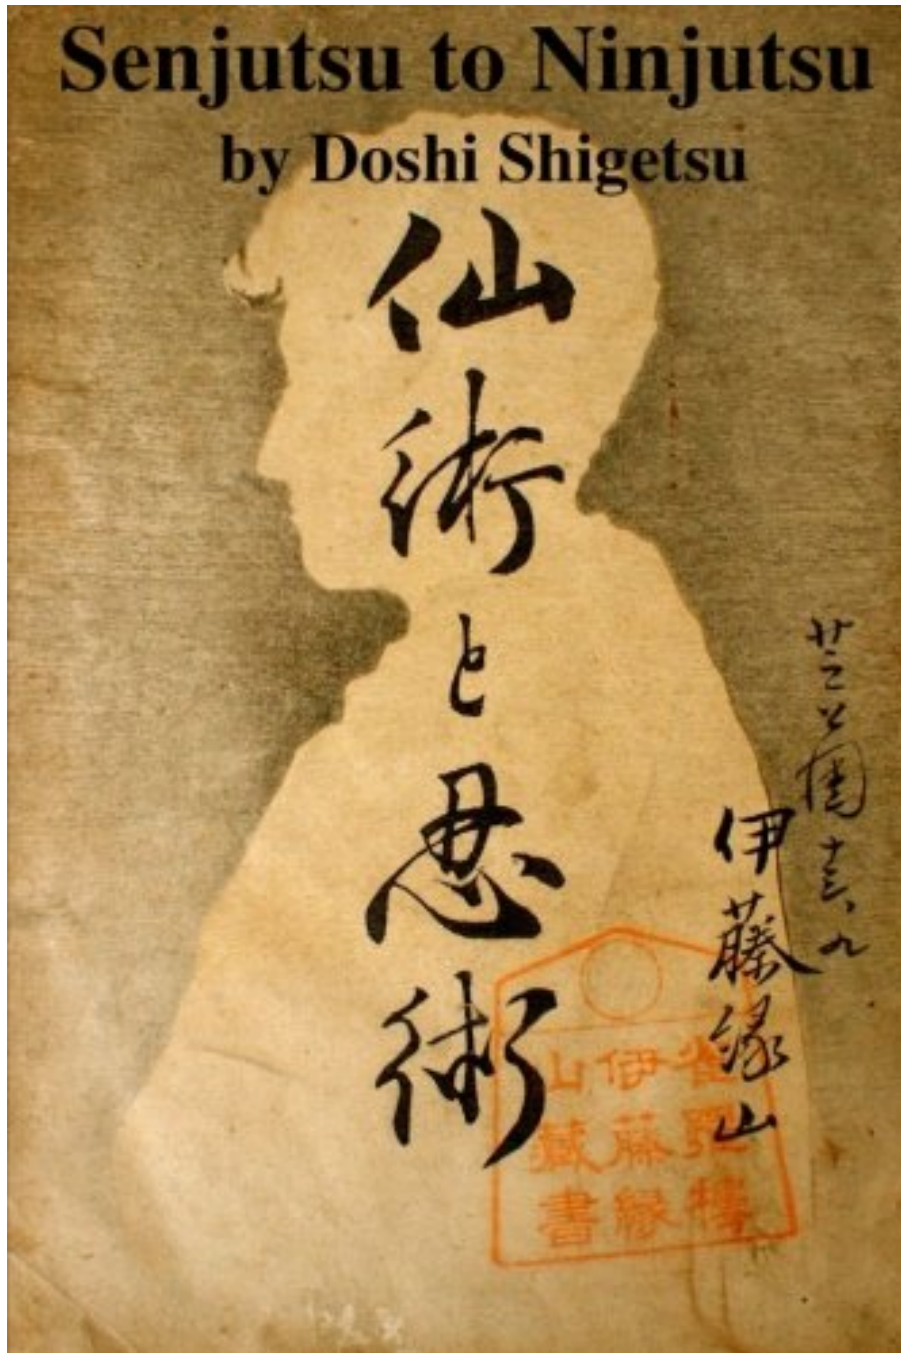 Senjutsu to Ninjutsu
by Doshi Shigetsu
仙術と忍術
伊藤縁山
雀
伊藤縁
山蔵書